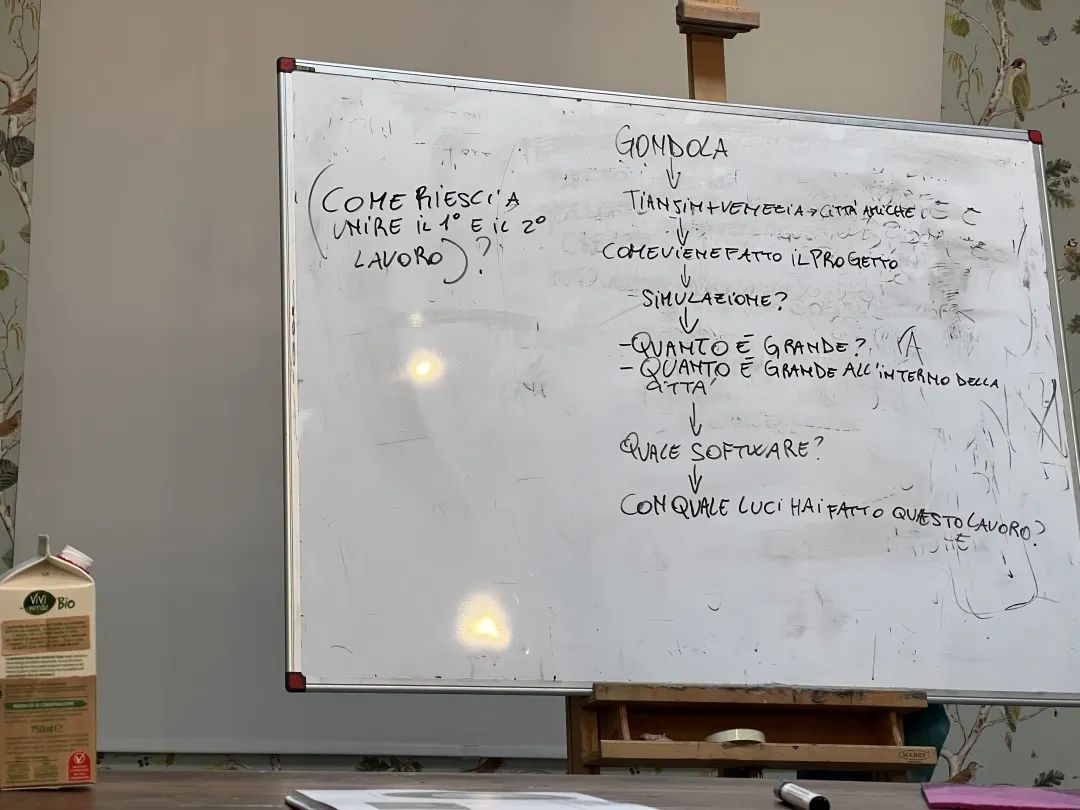 GONDOLA
TIANSIM+VENEZIA→CITTÀ AMICHE
COME VIENE FATTO IL PROGETTO
-SIMULAZIONE?
-QUANTO È GRANDE?
-QUANTO È GRANDE ALL'INTERNO DELLA
CITTÀ
QUALE SOFTWARE?
CON QUALE LUCI HAI FATTO QUESTO LAVORO?
(COME RIESCI A
UNIRE IL 1° E IL 2°
LAVORO)?
ViVi
verde Bio
750ml e
MABEF